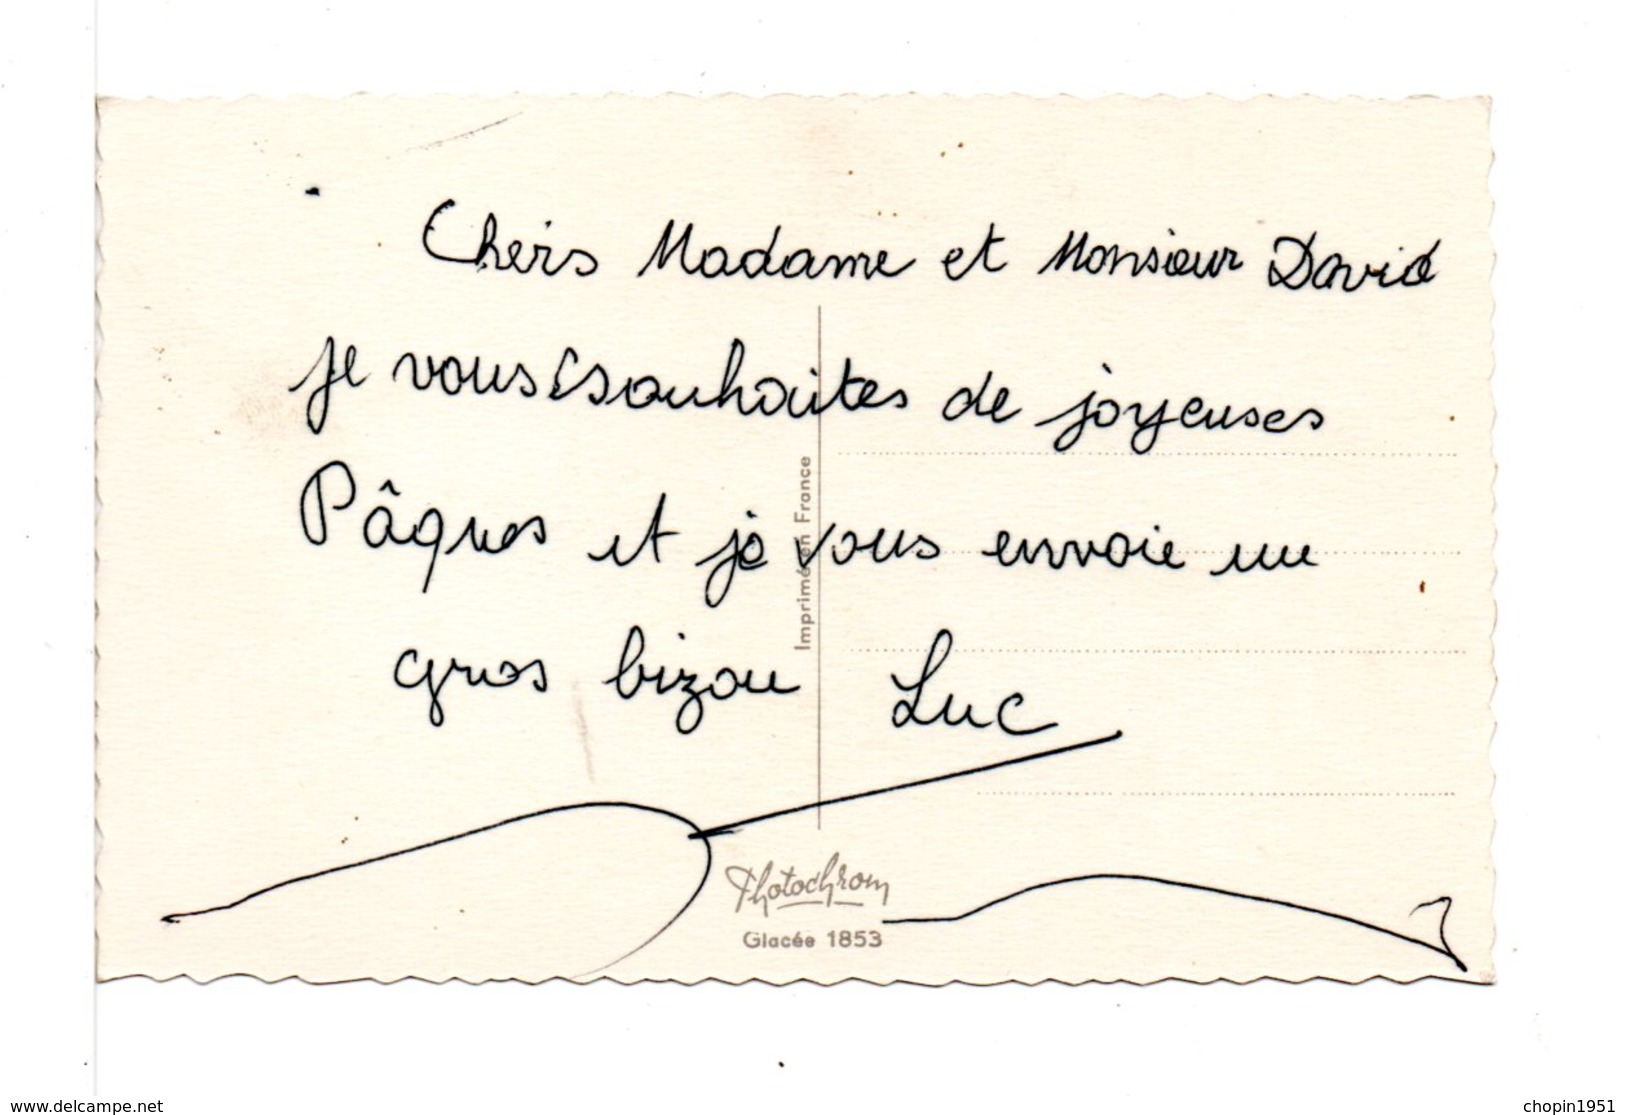 Cheris Madame et Monsieur David
je vous souhaites de joyeuses
Pâques et je vous envoie un
gros bizou Luc
Imprimé en France
Photochrom
Glacée 1853
www.delcampe.net
chopin1951